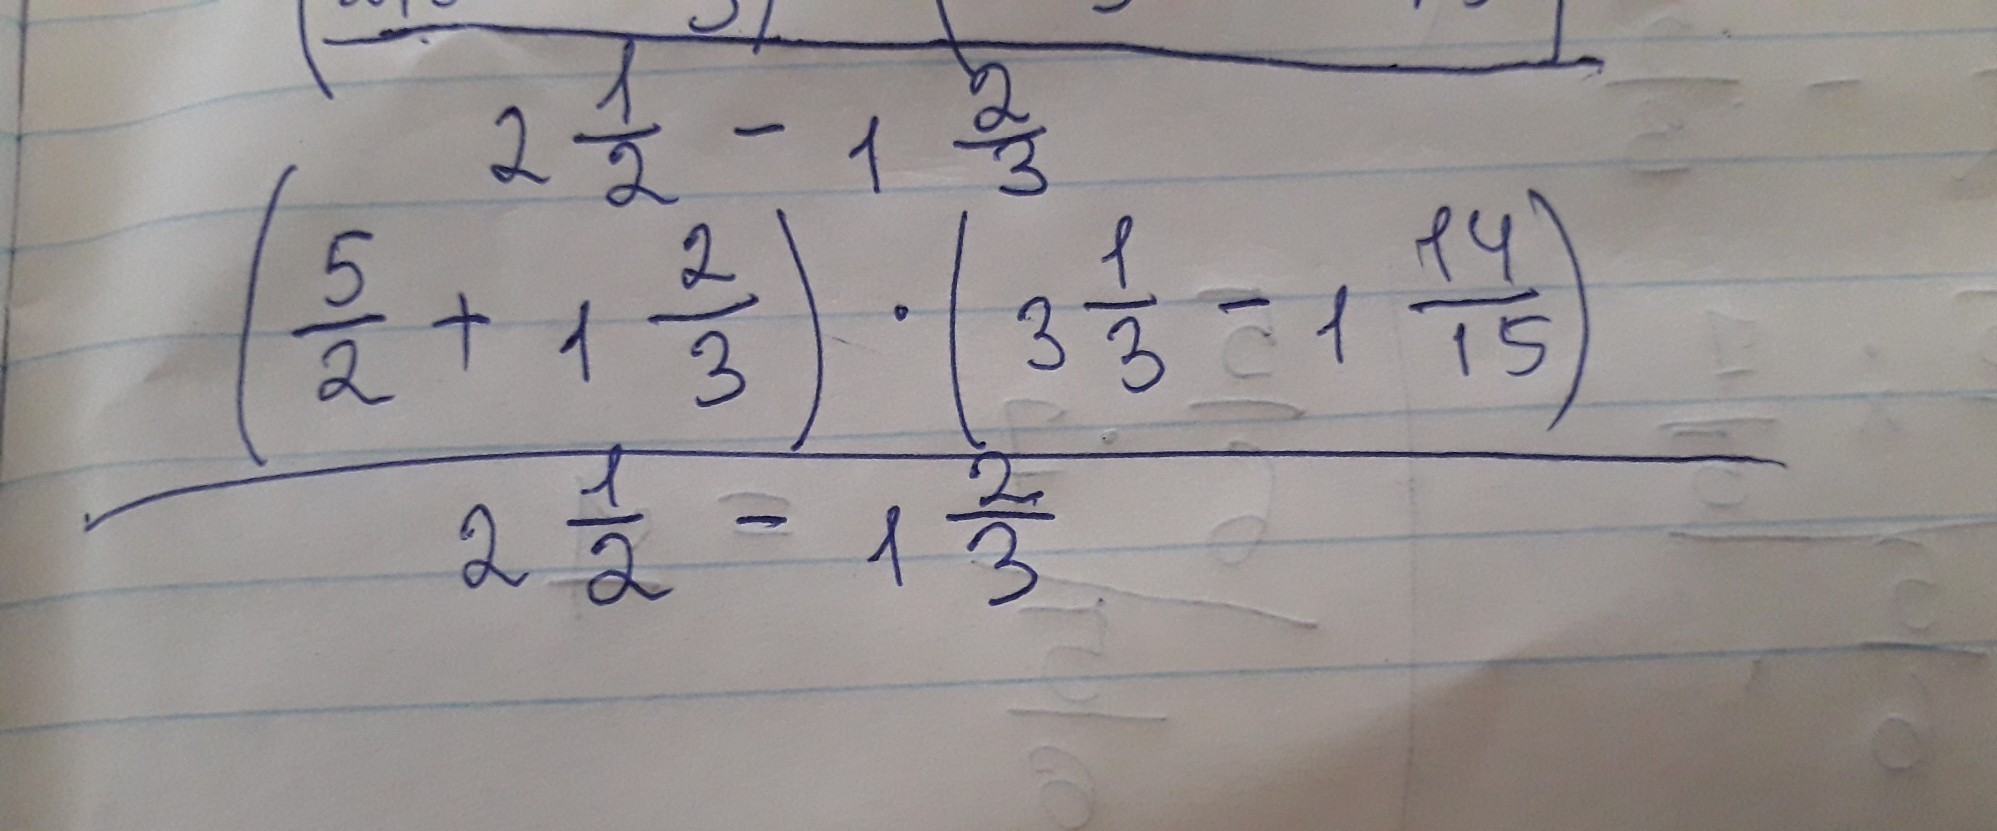 2 1/2 - 1 2/3
(5/2 + 1 2/3) · (3 1/3 - 1 14/15)
2 1/2 - 1 2/3